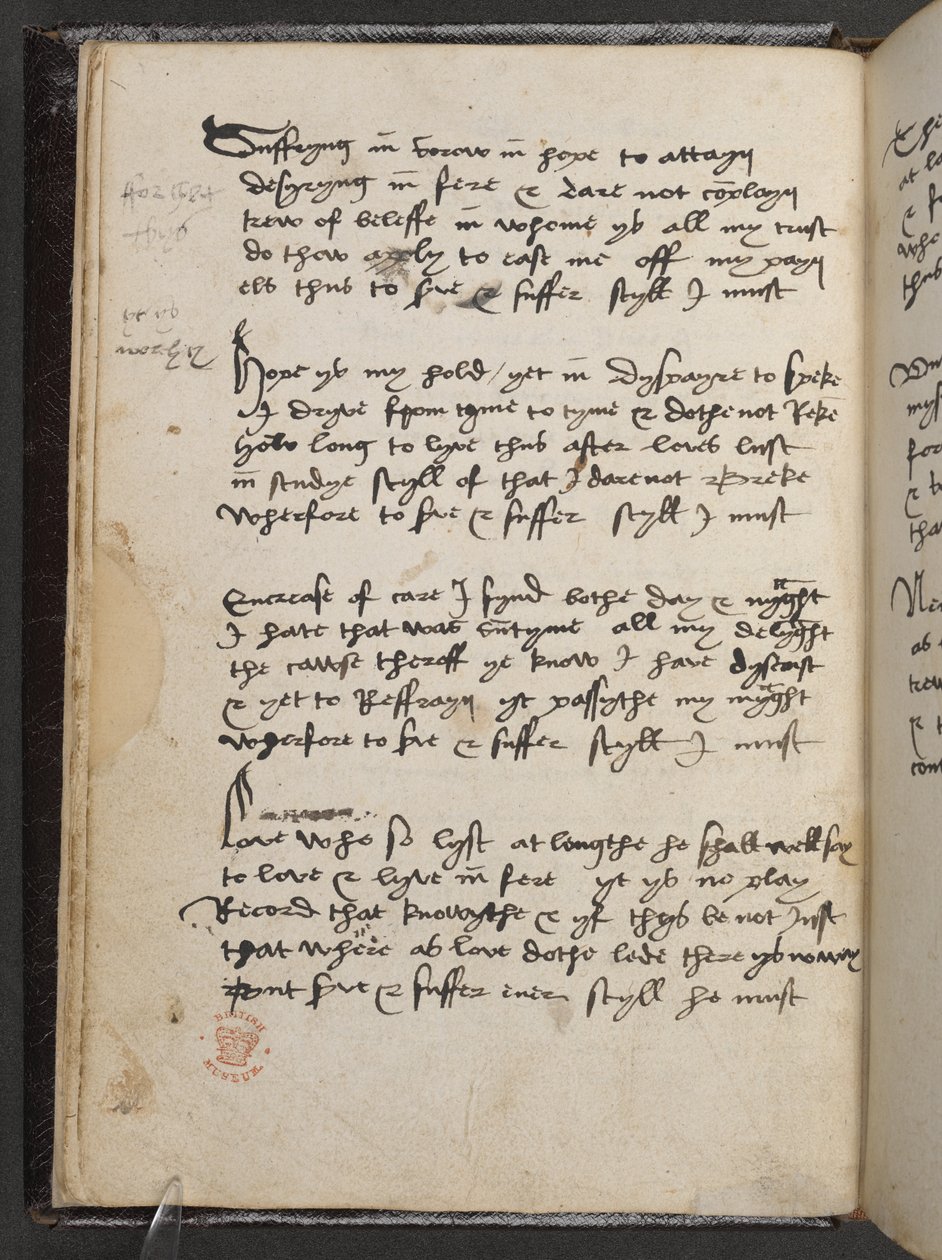 Suffryng in sorow in hope to attayn
desyryng in fere & dare not coplayn
trew of beleffe in whome ys all my trust
do thow apply to ease me off my payn
els thus to serve & suffer styll I must
Hope ys my hold / yet in dyspayre to speke
I dryve from tyme to tyme & dothe not Reke
How long to lyve thus after loves lust
in studye styll of that I dare not breke
wherfore to serve & suffer styll I must
Encrease of care I fynd bothe day & nyght
I hate that was sumtyme all my delyght
the cawse theroff ye know I have dyscust
& yet to Reffrayn yt passythe my myght
wherfore to serve & suffer styll I must
Love who so lyst at lengthe he shall well say
to love & lyve in fere yt ys no play
Record that knowythe & yf thys be not Just
that where as love dothe lede there ys no way
But serve & suffer ever styll he must
fforget
thys
yt ys
worhy
BRITISH
MUSEUM